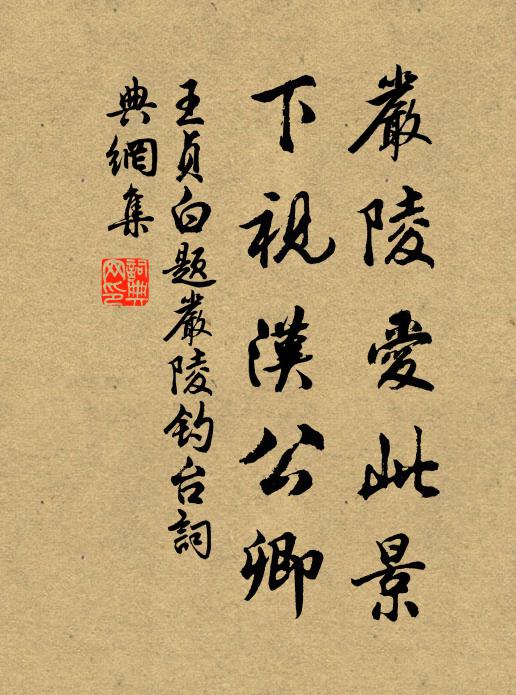 嚴陵愛此景
下視漢公卿
王貞白題嚴陵釣台詞
典網集
詞典
网印